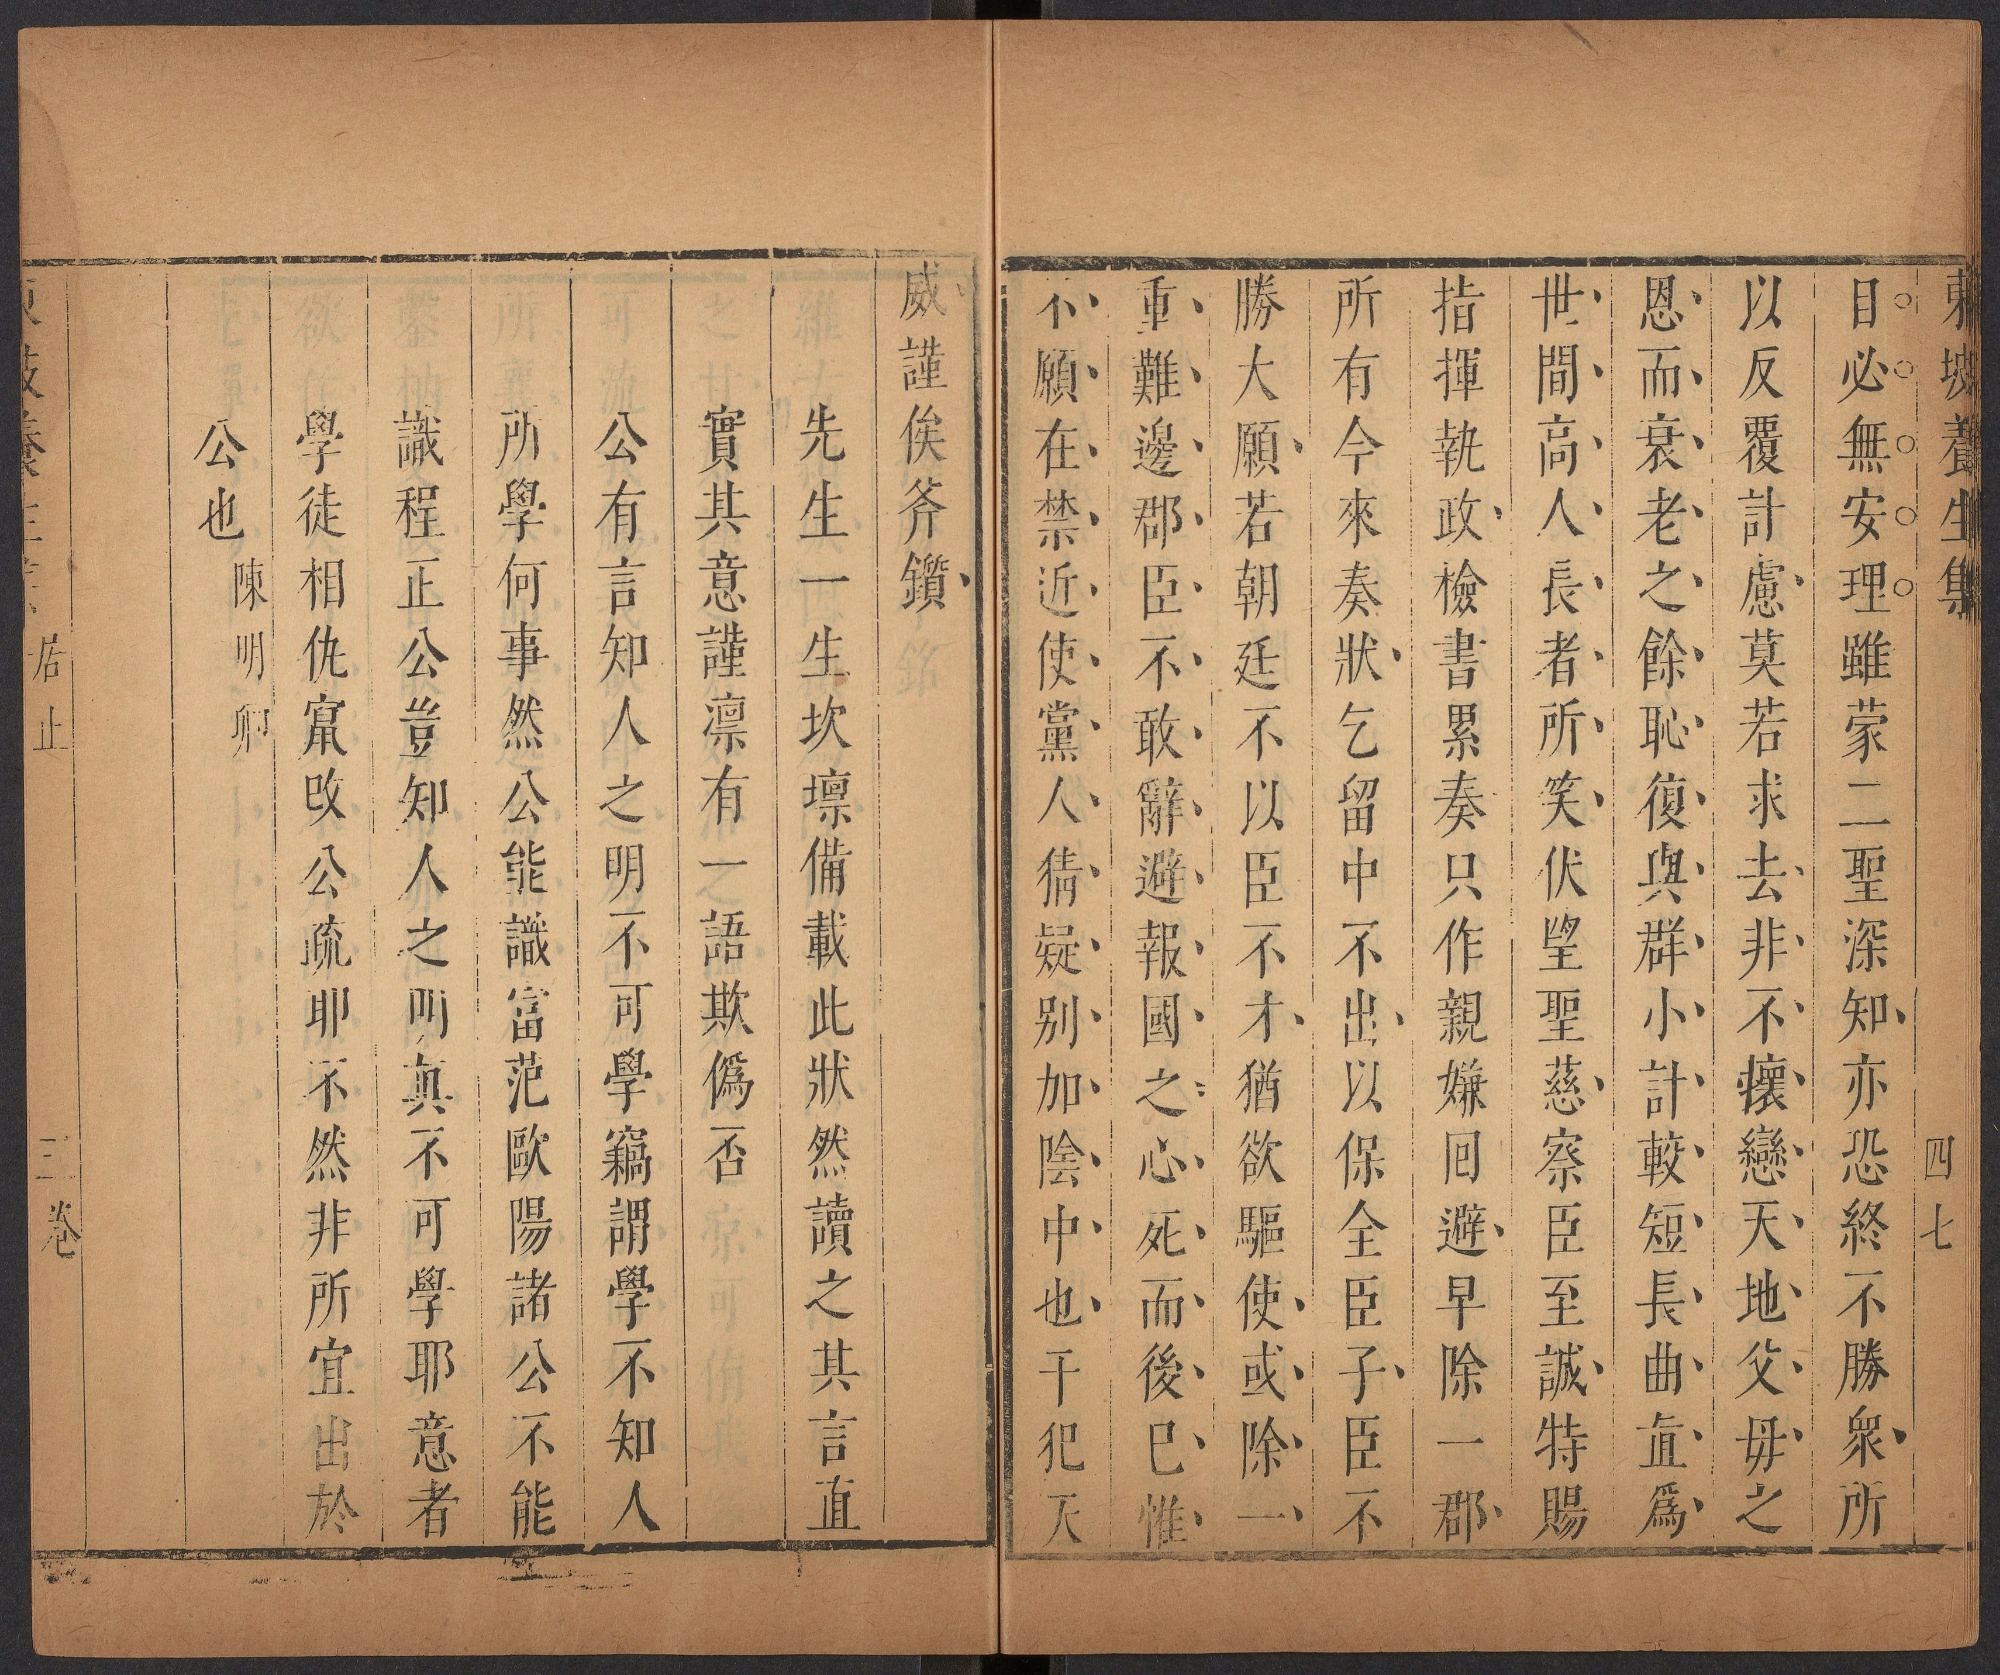 東坡養生集 四七
目必無安理雖蒙二聖深知亦恐終不勝衆所
以反覆計慮莫若求去非不懷戀天地父毋之
恩而衰老之餘恥復與群小計較短長曲直爲
世間高人長者所笑伏望聖慈察臣至誠特賜
指揮執政檢書累奏只作親嫌囘避早除一郡
所有今來奏狀乞留中不出以保全臣子臣不
勝大願若朝廷不以臣不才猶欲驅使或除一
重難邊郡臣不敢辭避報國之心死而後已惟
不願在禁近使黨人猜疑别加陰中也干犯天
威謹俟斧鑕
先生一生坎壈備載此狀然讀之其言直
實其意謹凛有一語欺僞否
公有言知人之明不可學竊謂學不知人
所學何事然公能識富范歐陽諸公不能
識程正公豈知人之明真不可學耶意者
學徒相仇竄改公疏耶不然非所宜出於
公也 陳明卿
東坡養生集 居止 三卷